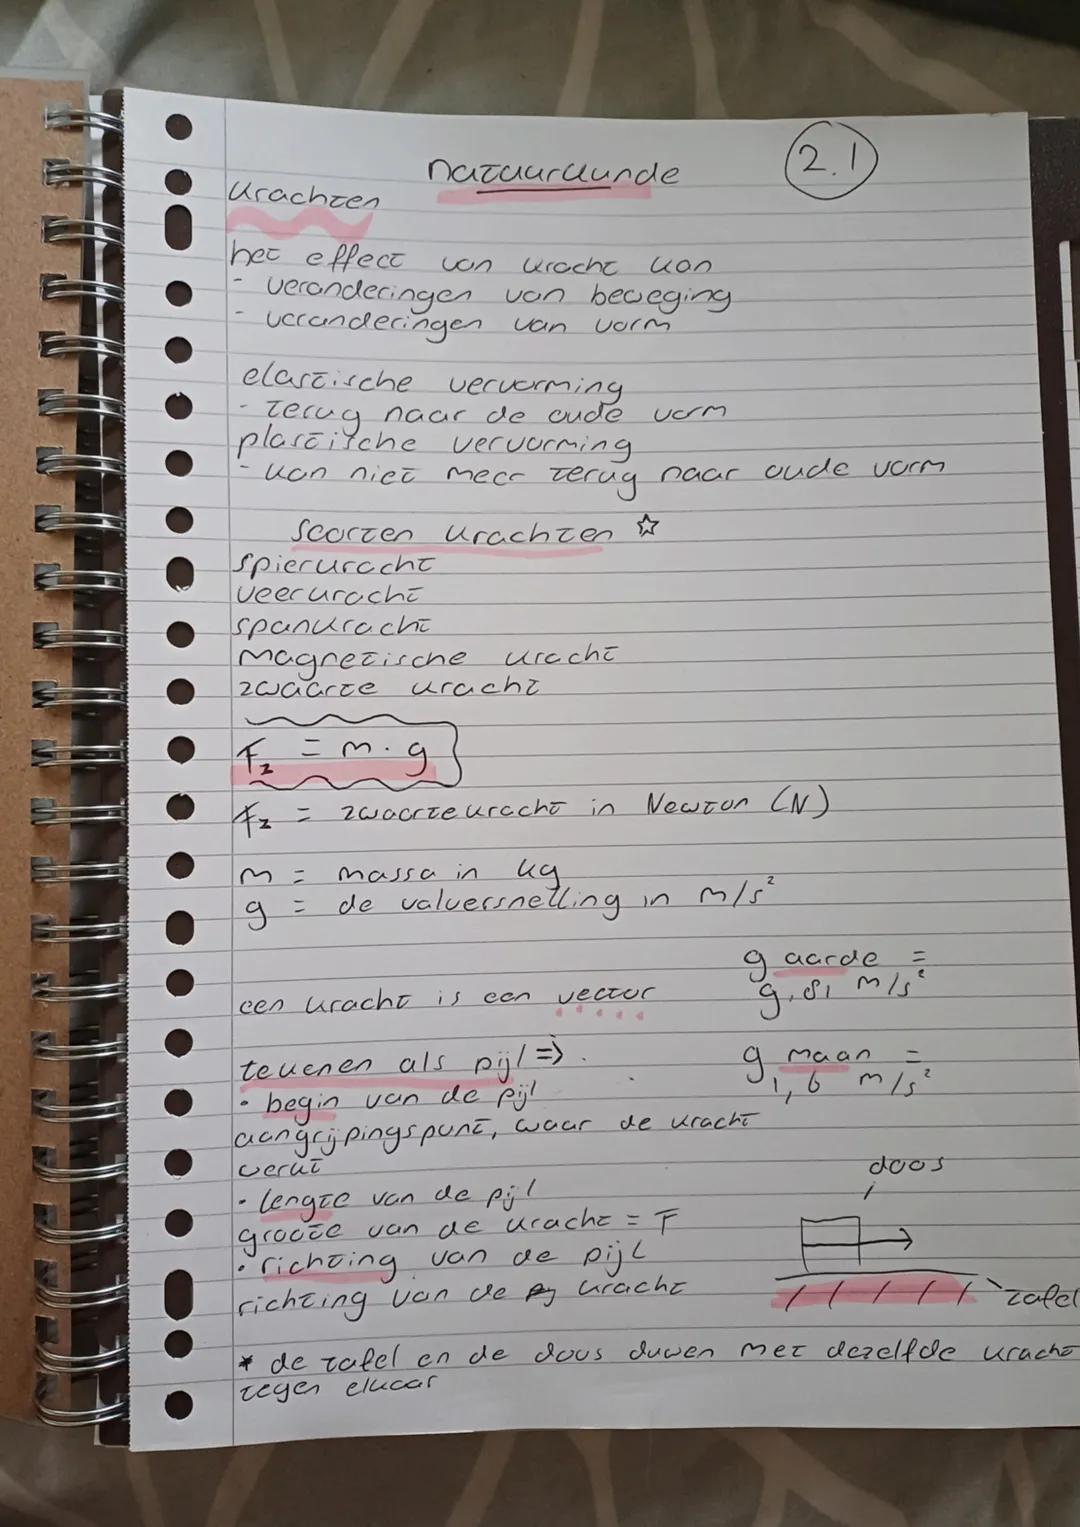 natuurkunde 2.1
krachten
het effect van kracht kan
- veranderingen van beweging
- veranderingen van vorm
elastische vervorming
- terug naar de oude vorm
plastische vervorming
- kan niet meer terug naar oude vorm
soorten krachten ☆
spierkracht
veerkracht
spankracht
magnetische kracht
zwaarte kracht
Fz = m · g
Fz = zwaartekracht in Newton (N)
m = massa in kg
g = de valversnelling in m/s²
g aarde =
9,81 m/s²
een kracht is een vector
g maan =
1,6 m/s²
tekenen als pijl =>
• begin van de pijl
aangrijpingspunt, waar de kracht
werkt
• lengte van de pijl
grootte van de kracht = F
• richting van de pijl
richting van de kracht
doos
tafel
* de tafel en de doos duwen met dezelfde kracht
tegen elkaar